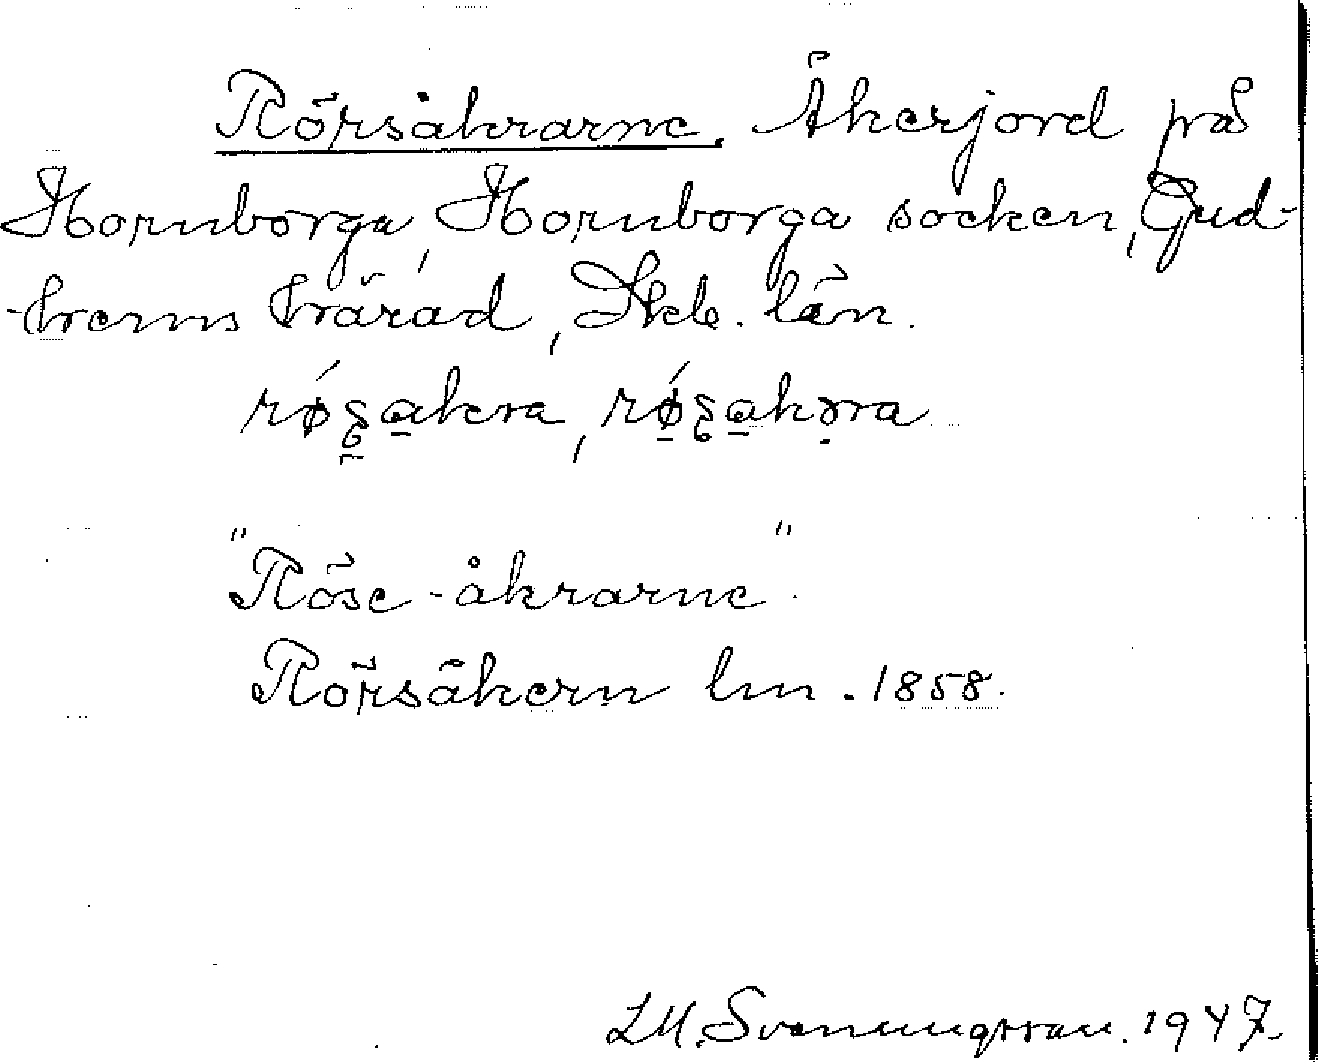 Rörsåkrarne. Åkerjord på
Hornborga, Hornborga socken, Gud-
-hems härad, Skb. län.
rǿʂakra, rǿʂakəra
"Röse-åkrarne"
Rörsåkern lm. 1858.
L.M. Svenungsson. 1947.